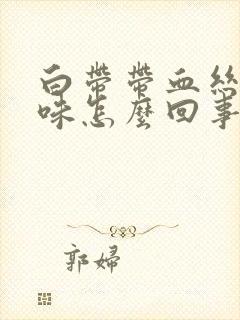 白帶帶血絲
味怎麼回事
郭婦